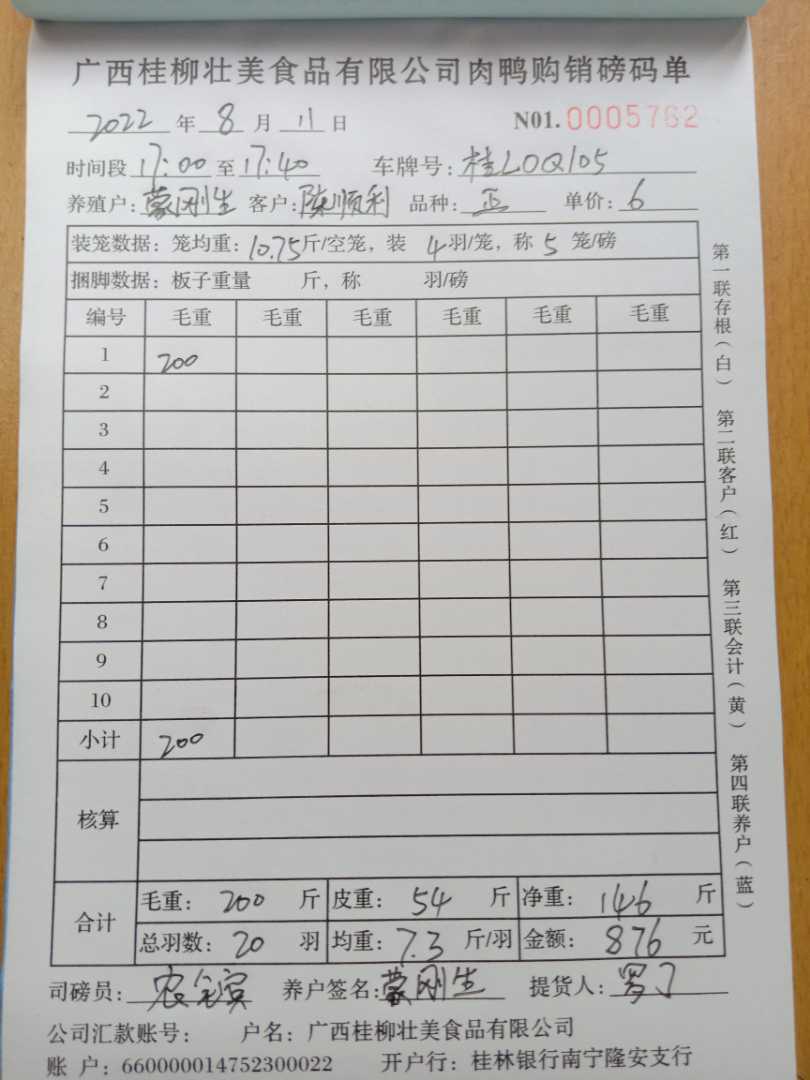 广西桂柳壮美食品有限公司肉鸭购销磅码单
2022 年 8 月 11 日 N01. 0005762
时间段 17:00 至 17:40 车牌号: 桂L0Q105
养殖户: 蒙刚生 客户: 陈顺利 品种: 正 单价: 6
装笼数据: 笼均重: 10.75 斤/空笼, 装 4 羽/笼, 称 5 笼/磅
捆脚数据: 板子重量 斤, 称 羽/磅
编号 毛重 毛重 毛重 毛重 毛重 毛重
1 200
2
3
4
5
6
7
8
9
10
小计 200
核算
合计 毛重: 200 斤 皮重: 54 斤 净重: 146 斤
总羽数: 20 羽 均重: 7.3 斤/羽 金额: 876 元
司磅员: 农 宾 养户签名: 蒙刚生 提货人: 罗
公司汇款账号: 户名: 广西桂柳壮美食品有限公司
账 户: 660000014752300022 开户行: 桂林银行南宁隆安支行
第一联存根(白) 第二联客户(红) 第三联会计(黄) 第四联养户(蓝)